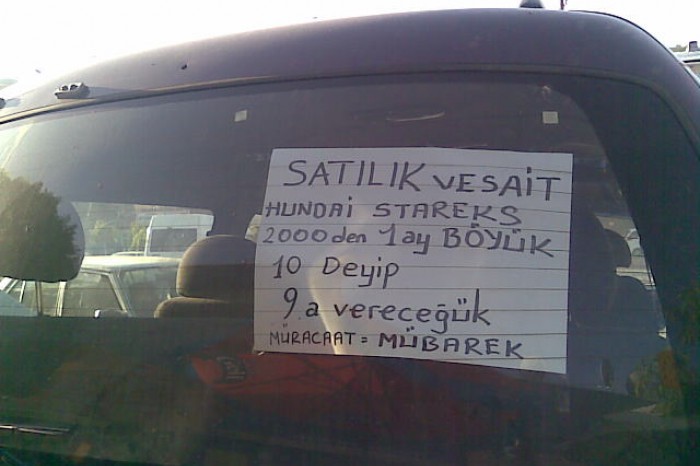 SATILIK VESAİT
HUNDAİ STAREKS
2000den 1ay BÖYÜK
10 Deyip
9.a vereceğük
MÜRACAAT = MÜBAREK